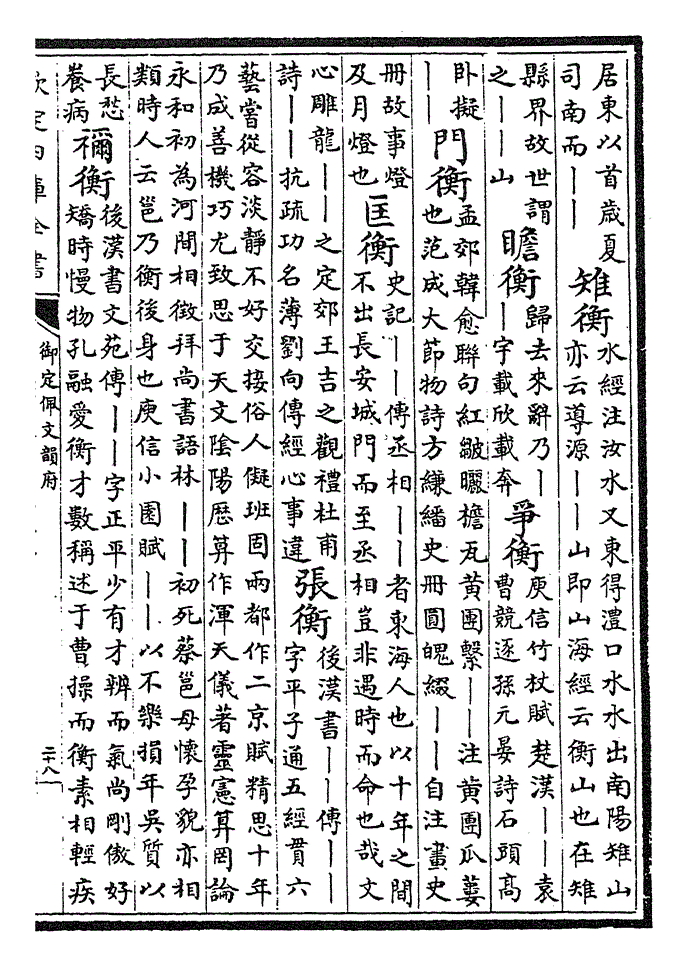 居東以首歲夏
司南而――
雉衡
水經注汝水又東得澧口水水出南陽雉山
亦云導源――山即山海經云衡山也在雉
縣界故世謂
之――山
瞻衡
歸去來辭乃―
―宇載欣載奔
爭衡
庾信竹杖賦楚漢――袁
曹競逐孫元晏詩石頭高
卧擬
――
門衡
孟郊韓愈聯句紅皺曬檐瓦黄團繫――注黄團瓜蔞
也范成大節物詩方縑繙史冊圓魄綴――自注畫史
冊故事燈
及月燈也
匡衡
史記――傳丞相――者東海人也以十年之間
不出長安城門而至丞相豈非遇時而命也哉文
心雕龍――之定郊王吉之觀禮杜甫
詩――抗疏功名薄劉向傳經心事違
張衡
後漢書――傳――
字平子通五經貫六
藝嘗從容淡靜不好交接俗人儗班固兩都作二京賦精思十年
乃成善機巧尤致思于天文陰陽歷算作渾天儀著靈憲算罔論
永和初為河間相徵拜尚書語林――初死蔡邕母懷孕貌亦相
類時人云邕乃衡後身也庾信小園賦――以不樂損年吳質以
長愁
養病
禰衡
後漢書文苑傳――字正平少有才辨而氣尚剛傲好
矯時慢物孔融愛衡才數稱述于曹操而衡素相輕疾
欽定四庫全書
御定佩文韻府
二十八